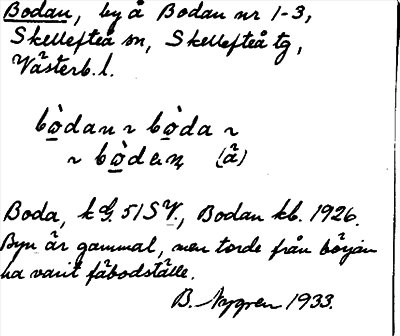 Bodan, by å Bodan nr 1-3,
Skellefteå sn, Skellefteå tg,
Västerb. l.
bò̲dan ~ bò̲da ~
~ bò̲dan̥ (ä̀)
Boda, k G. 51 S V., Bodan kb. 1926.
Byn är gammal, men torde från början
ha varit fäbodställe.
B. Nygren 1933.